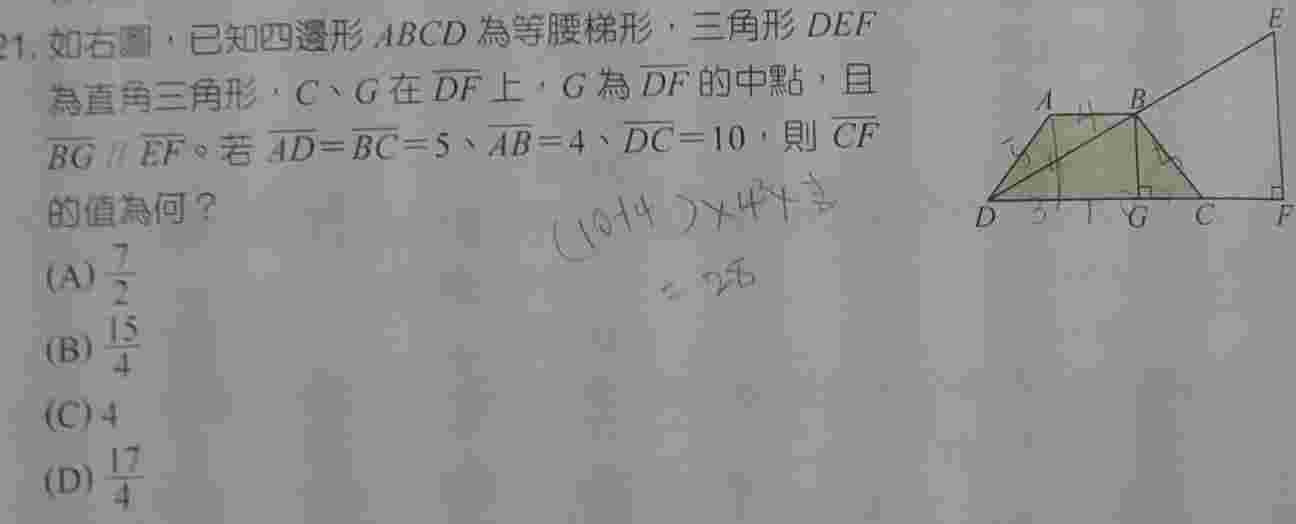 21. 如右圖，已知四邊形 ABCD 為等腰梯形，三角形 DEF
為直角三角形，C、G 在 DF 上，G 為 DF 的中點，且
BG // EF。若 AD=BC=5、AB=4、DC=10，則 CF
的值為何？
(A) 7/2
(B) 15/4
(C) 4
(D) 17/4
(10+4)×4×1/2
= 28
E
A 4 B
5 5
D 3 G C F